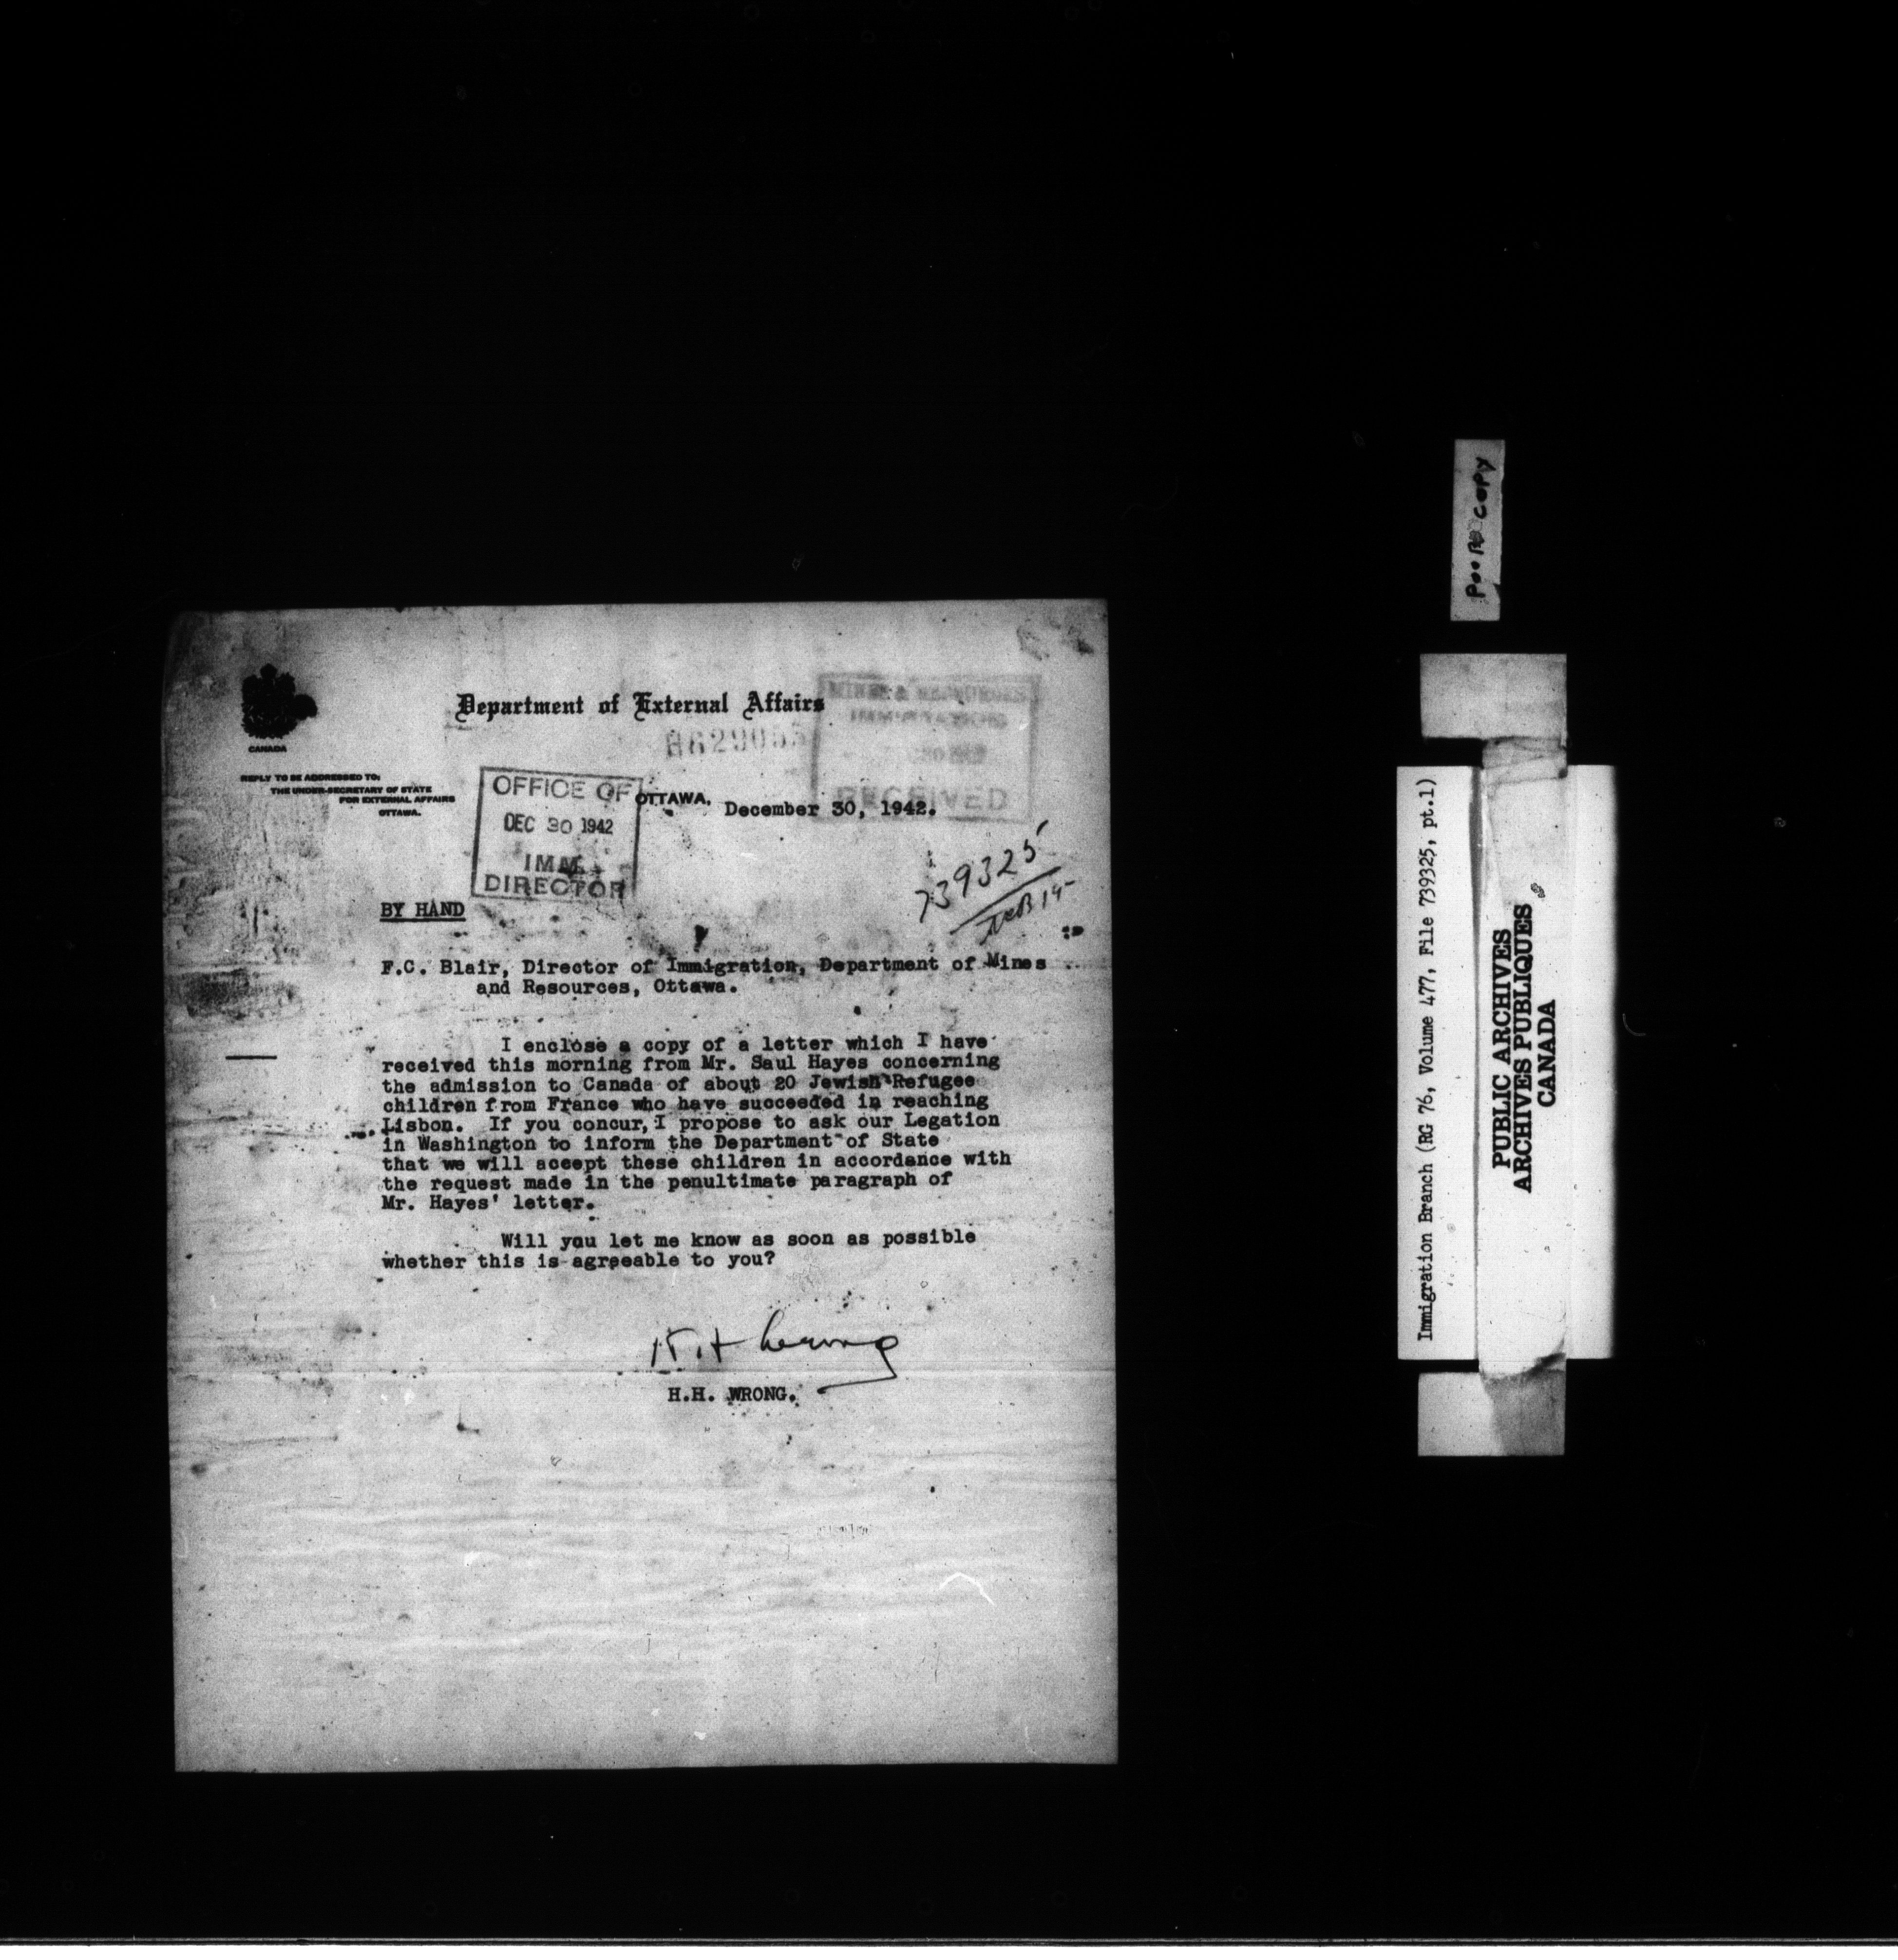 Department of External Affairs
CANADA
MINES & RESOURCES
IMMIGRATION
RECEIVED
REPLY TO BE ADDRESSED TO:
THE UNDER-SECRETARY OF STATE
FOR EXTERNAL AFFAIRS
OTTAWA.
OFFICE OF
DEC 30 1942
IMM.
DIRECTOR
OTTAWA, December 30, 1942.
739325
BY HAND
F.C. Blair, Director of Immigration, Department of Mines
and Resources, Ottawa.
I enclose a copy of a letter which I have
received this morning from Mr. Saul Hayes concerning
the admission to Canada of about 20 Jewish Refugee
children from France who have succeeded in reaching
Lisbon. If you concur, I propose to ask our Legation
in Washington to inform the Department of State
that we will accept these children in accordance with
the request made in the penultimate paragraph of
Mr. Hayes' letter.
Will you let me know as soon as possible
whether this is agreeable to you?
H.H. Wrong
H.H. WRONG.
POOR COPY
Immigration Branch (RG 76, Volume 477, File 739325, pt.1)
PUBLIC ARCHIVES
ARCHIVES PUBLIQUES
CANADA